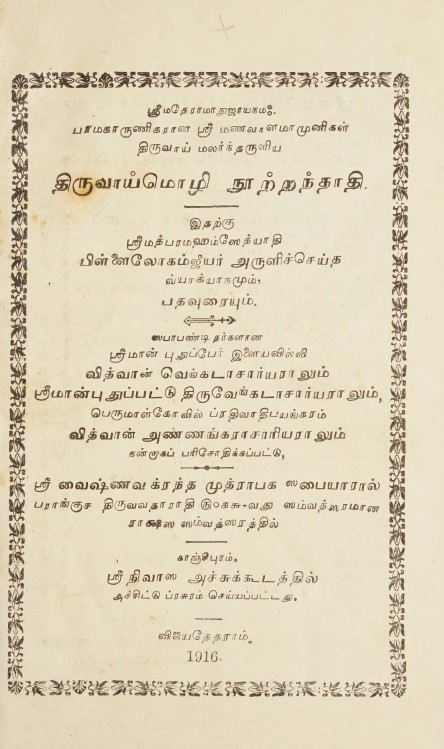 ஸ்ரீமதேராமாநுஜாயநம:.
பரமகாருணிகரான ஸ்ரீ மணவாளமாமுனிகள்
திருவாய் மலர்ந்தருளிய
திருவாய்மொழி நூற்றந்தாதி.
இதற்கு
ஸ்ரீமத்பரமஹம்ஸேத்யாதி
பிள்ளைலோகம்ஜீயர் அருளிச்செய்த
வ்யாக்யாநமும்,
பதவுரையும்.
ஸபாபண்டிதர்களான
ஸ்ரீமான் புதுப்பேர் இளையவில்லி
வித்வான் வெங்கடாசார்யராலும்
ஸ்ரீமான்புதுப்பட்டு திருவேங்கடாசார்யராலும்,
பெருமாள்கோவில் ப்ரதிவாதிபயங்கரம்
வித்வான் அண்ணங்கராசாரியராலும்
நன்றாகப் பரிசோதிக்கப்பட்டு,
ஸ்ரீ வைஷ்ணவக்ரந்த முத்ராபக ஸபையாரால்
பராங்குச திருவவதாராதி வது ஸம்வத்ஸரமான
ராக்ஷஸ ஸம்வத்ஸரத்தில்
காஞ்சீபுரம்,
ஸ்ரீநிவாஸ அச்சுக்கூடத்தில்
அச்சிட்டு ப்ரசுரம் செய்யப்பட்டது.
விஜயதேதராம்.
1916.